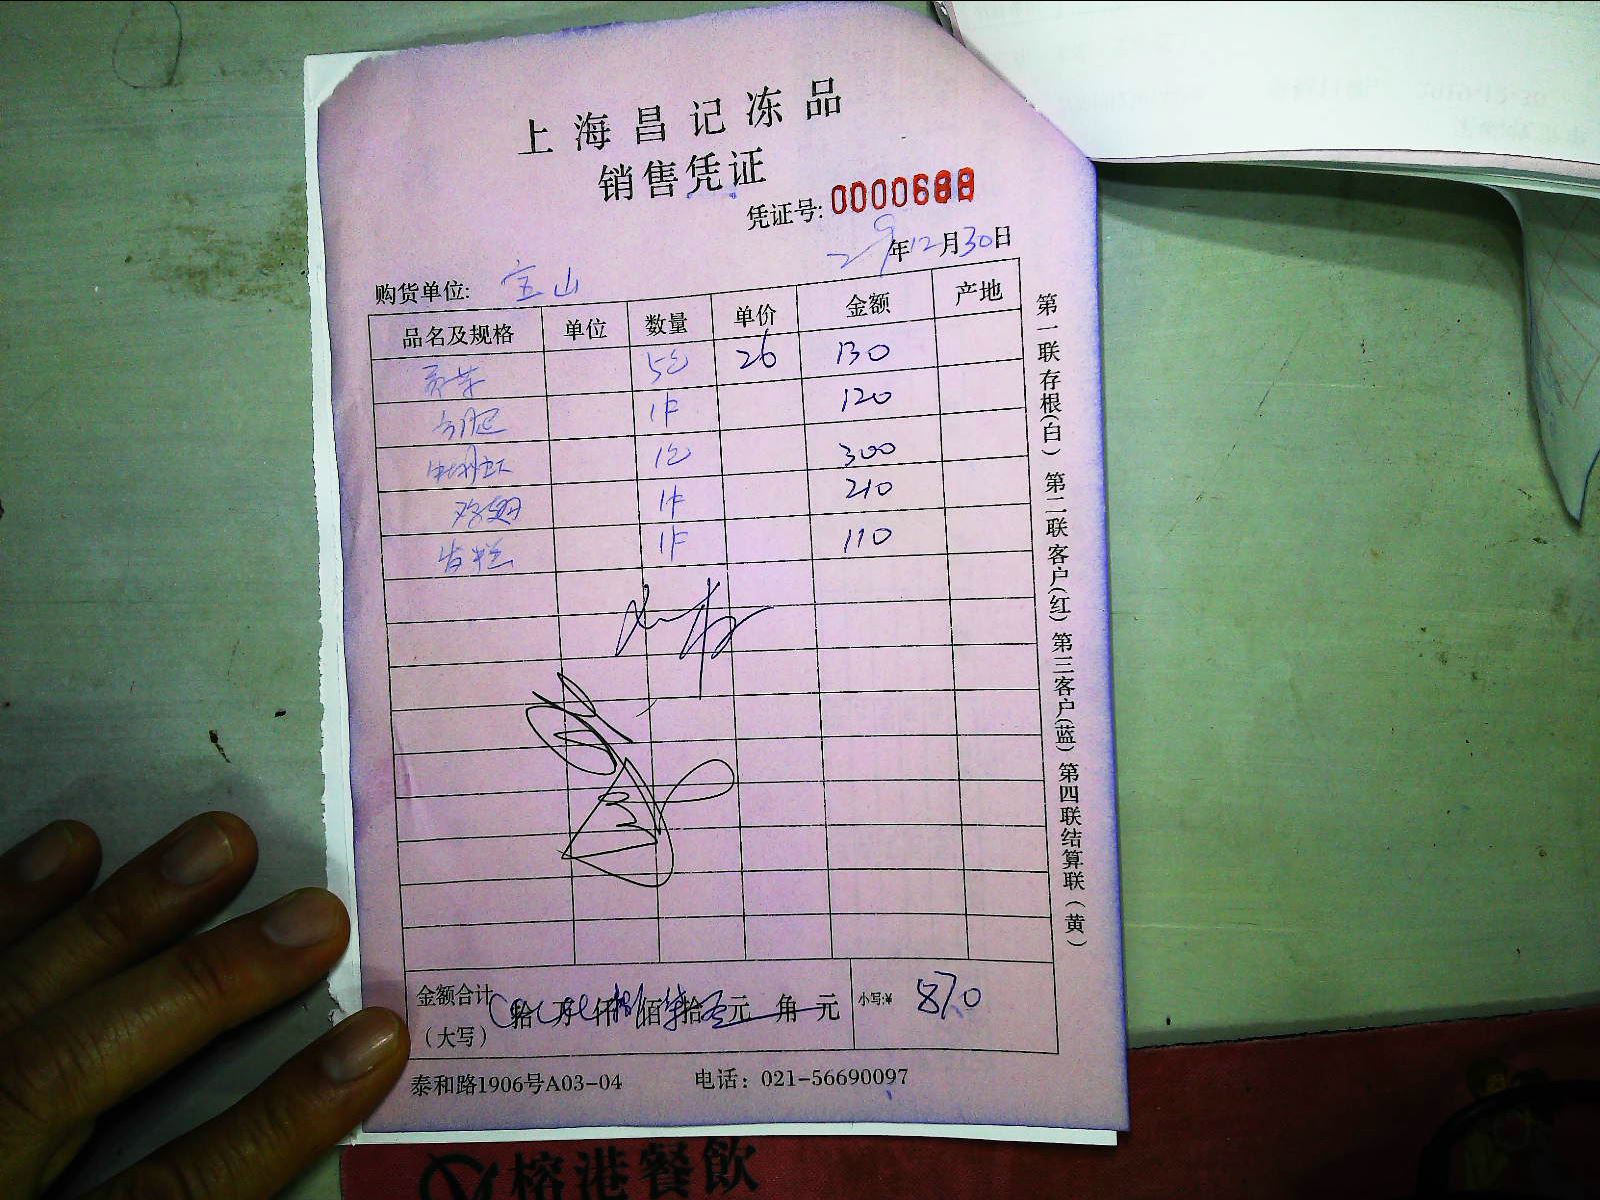 上海昌记冻品
销售凭证
凭证号: 0000688
年12月30日
购货单位: 宝山
品名及规格 单位 数量 单价 金额 产地
贡菜 5包 26 130
1件 120
1包 300
鸡翅 1件 210
1件 110
金额合计 拾 万 仟 捌佰 柒拾 元 角 元
(大写)
小写:¥ 870
泰和路1906号A03-04 电话：021-56690097
第一联存根(白) 第二联客户(红) 第三客户(蓝) 第四联结算联(黄)
榕港餐飲